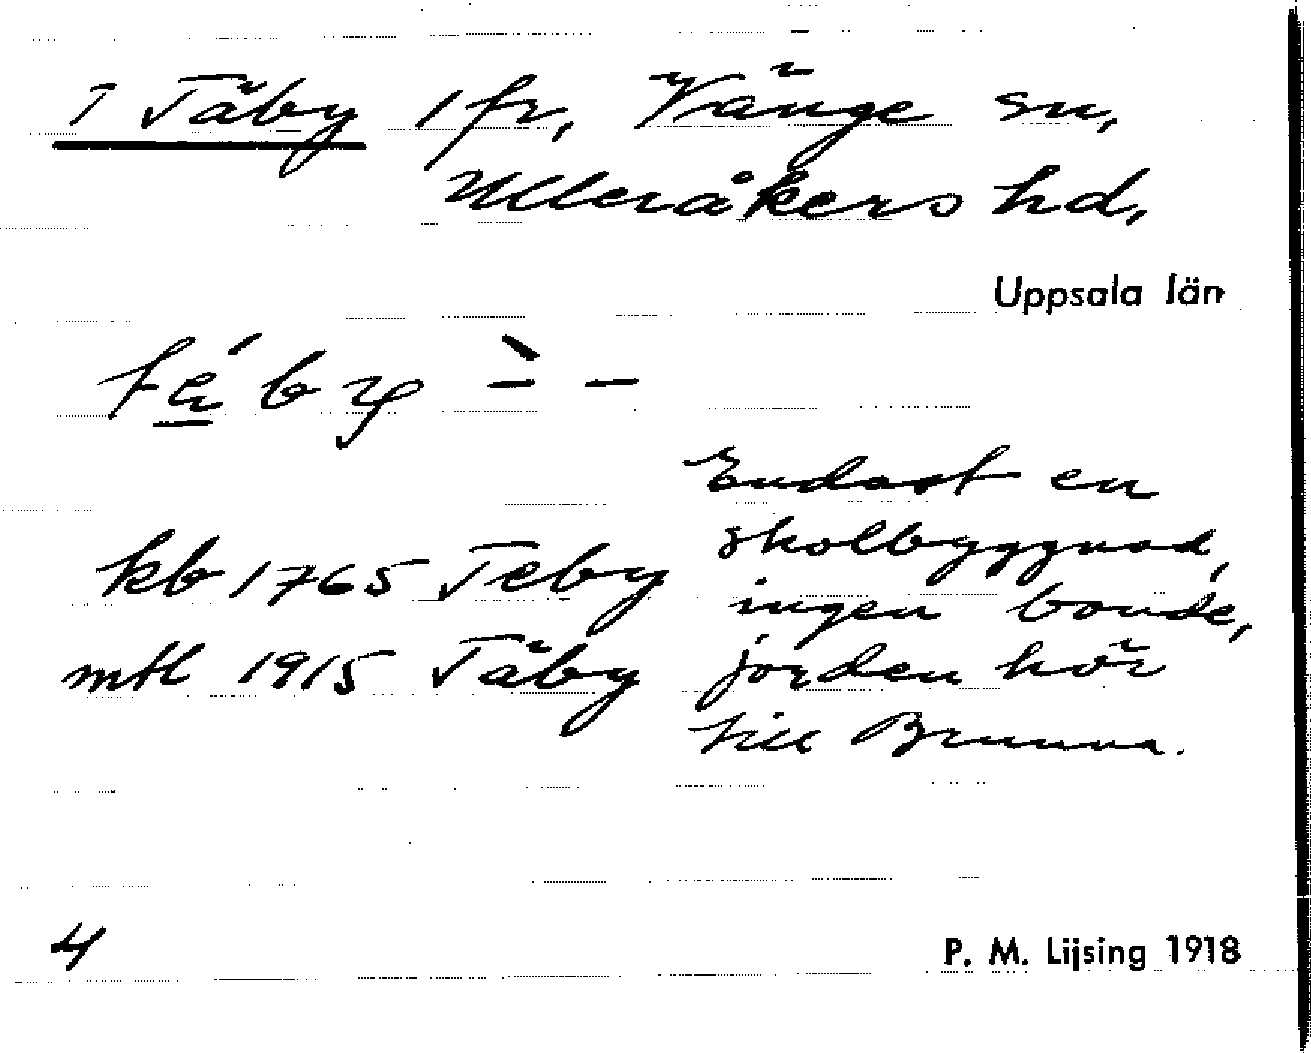 1 Täby 1 fr, Vänge sn,
Ulleråkers hd,
Uppsala län
tä́by ̀– –
Endast en
skolbyggnad,
ingen bonde,
jorden hör
till Brunna.
kb 1765 Teby
mtl 1915 Täby
4
P. M. Lijsing 1918